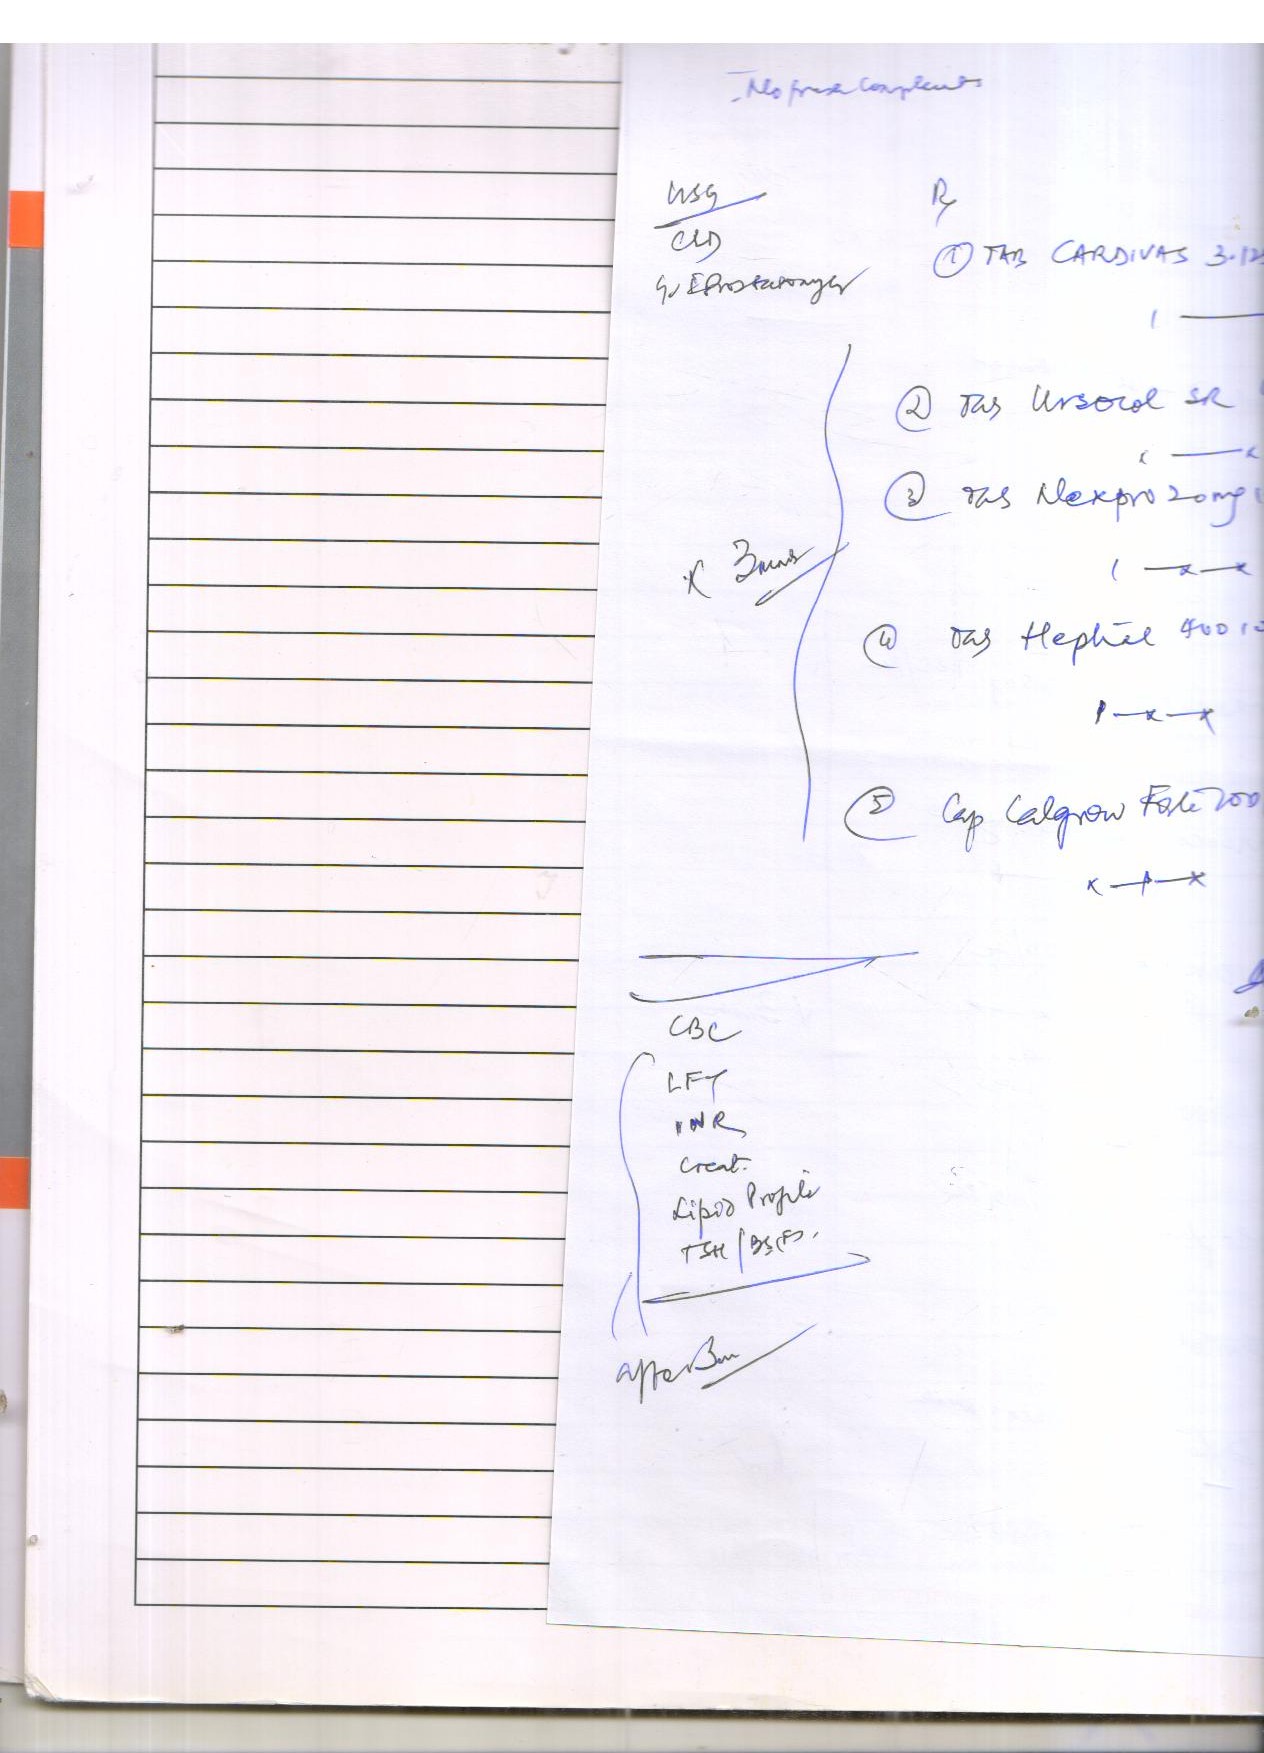 No fresh Complaints
USG
CLD
Rx
① TAB CARDIVAS 3.125
1 —
② Tab Ursocol SR
x — x
③ Tab Nexpro 20mg
1 — x — x
x 3 mns
④ Tab 400
1 — x — x
⑤ Cap Calgrow Forte 200
x — 1 — x
CBC
LFT
INR
Creat.
Lipid Profile
TSH / BS(F).
after 3m